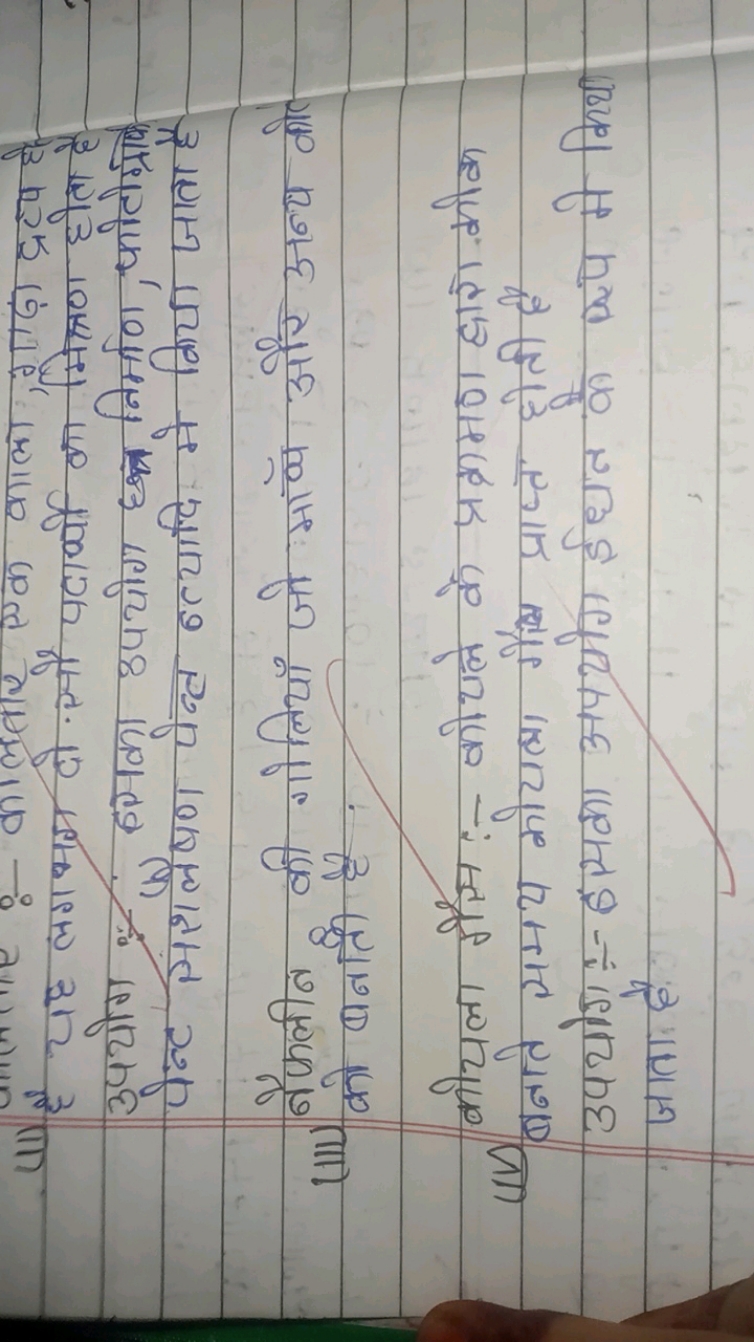 (ii) अलकतरा :- कोलतार एक काला, गाढ़ा द्रव
है यह लगभग दो सौ पदार्थों का मिश्रण होता है
उपयोग :- इसका उपयोग निर्माण,
पेन्ट संश्लेषण पेन्ट इत्यादि में किया जाता है
(iii) नेफ्तलीन की गोलियाँ जो भाप और अन्य की
को बनाते है
(iv) कोयला गैस :- कोयले के प्रक्रमण द्वारा कोक
बनाते समय कोयला गैस प्राप्त होती है
उपयोग :- इसका उपयोग ईंधन के रूप में किया
जाता है